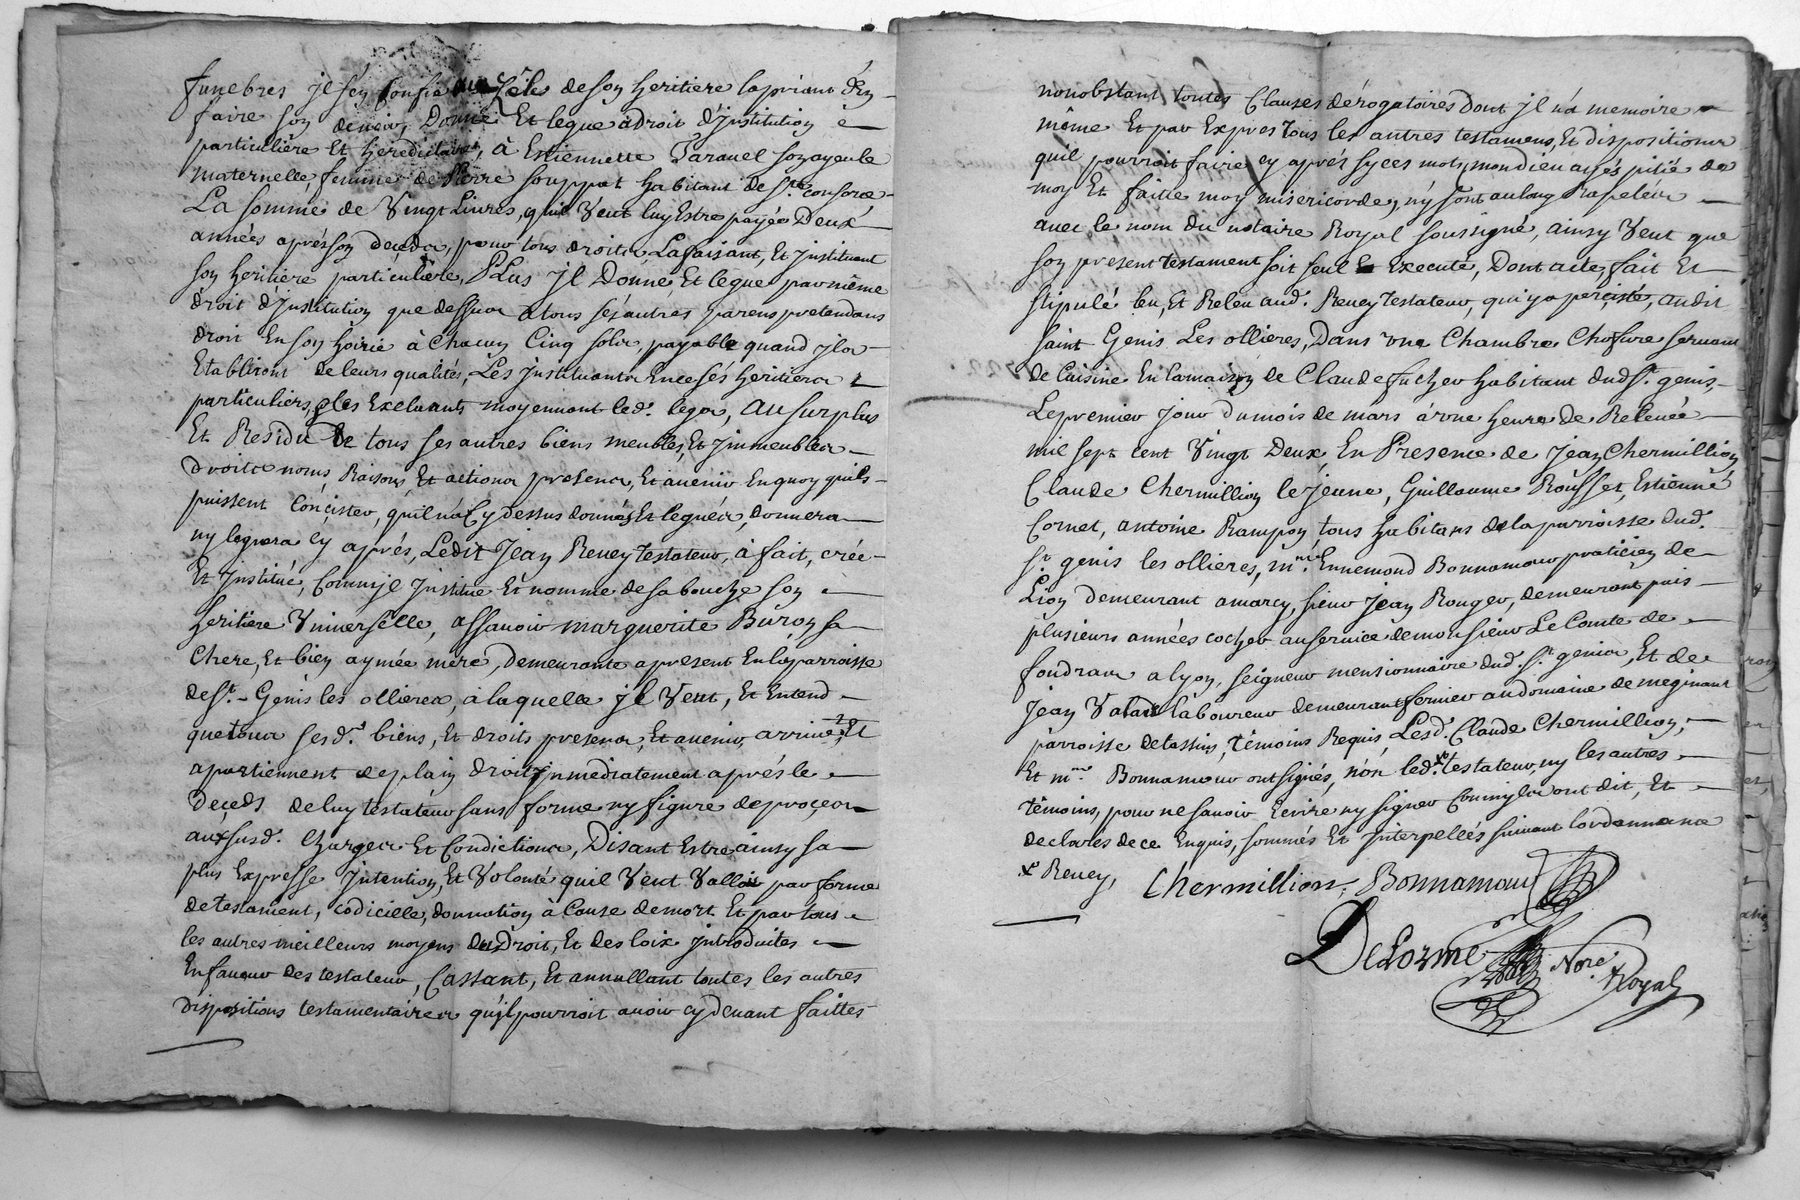 funebres jl sén confie aux sélés de son heritiere la priant d'En
faire son devoir, Donne Et legue a droit d'Jnstitution
particuliere Et hereditaire, à Estiennette Paravel son ayeule
maternelle, femme de Pierre souppat habitant de Ste. consorce
La somme de Vingt Livres, quil Veut luy Estre payée Deux
années aprés son decedz, pour tous droits La faisant, Et Jnstituant
son heritiere particuliere, PLus jl Donne Et legue par même
droit d'Jnstitution que dessus a tous sés autrés parens pretendans
droit En son hoirie à Chacun Cinq solz, payable quand jlz
Etabliront de leurs qualités, Les Jnstituants En ce sés heritiers
particuliers, & les Excluants moyennant led. legs, au surplus
Et Residu De tous ses autres biens meubles, Et Jmmeubles
droits noms, Raisons, Et actions presens, Et avenir En quoy quils
puissent Concister, quil n'a Cy dessus donnés Et legués, donnera
ny leguera Cy aprés, Ledit Jean Reney Testateur, à fait, créé
Et Jnstitué, Comm'jl Jnstitue Et nomme de sa bouche son
heritiere Vniverselle, assavoir marguerite Buron sa
Chere, Et bien aymée mere, demeurante apresent En la parroisse
de St. Genis les ollieres, à laquelle jl Veut, Et Entend
que tous sesd. biens, Et droits presens, Et avenir, arrivent, Et
apartiennent de plain droit Jmmediatement aprés le
deceds de luy testateur sans forme ny figure de proces
aux susd. Charges Et Condictions, Disant Estre ainsy sa
plus Expresse Jntention, Et Volonté quil Veut Valloir par forme
de testament, codicille, donnation à Cause de mort Et par tous
les autres meilleurs moyens du Droit, Et des loix Jntroduites
En faveur des testateur, Cassant, Et annullant toutes les autres
dispositions testamentaires qu'jl pourroit avoir cy devant faittes
nonobstant toutes Clauses dérogatoires dont jl n'a memoire
même Et par Expres Tous les autres testamens, Et dispositions
quil pourroit faire cy aprés sy ces mots, mon dieu ayés pitié de
moy Et faitte moy misericorde, n'y sont au long Rapelés
avec le nom du notaire Royal soussigné, ainsy Veut que
son present testament soit seul Executé, Dont acte, fait Et
stipulé leu, Et Releu aud. Reney Testateur, qui y a percisté, audit
saint Genis Les ollieres, Dans vne Chambre Chosfure servant
de Cuisine En la maison de Claude fucher habitant dud. St. genis,
Le premier Jour du mois de mars à vne heure de Relevée
mil sept cent Vingt Deux En Presence de Jean Chermillion
Claude Chermillion le Jeune, Guillaume Rousset, Estienne
Cornet, antoine Rampon tous habitans de la parroisse dud.
St. genis les ollieres, me. Ennemond Bonnamour praticien de
Lion demeurant a marcy, sieur Jean Rouger, demeurant puis
plusieurs années cocher au service de monsieur Le Comte de
foudras a lyon, seigneur mensionnaire dud. St. genis, Et de
Jean Valade laboureur demeurant fermier au domaine de meginant
parroisse de tassin, témoins Requis, Lesd. Claude Chermillion,
Et me. Bonnamour ont signés, non led. x testateur, ny les autrés
témoins, pour ne savoir Ecrire ny signer Comm'jls ont dit, Et
declarés de ce Enquis, sommés Et Jnterpellés suivant lordonnance
x Reney,
Chermillion, Bonnamour
DeLorme Nore. Royal